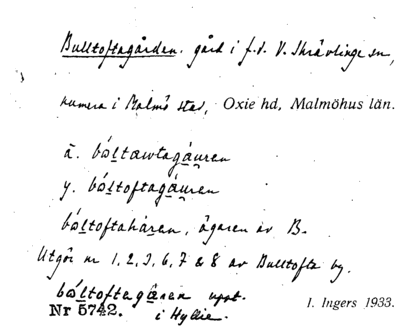 Bulltoftagården. gård i f.d. V. Skrävlinge sn,
numera i Malmö stad, Oxie hd, Malmöhus län.
ä. bóltawtagáuren
y. bóltoftagáuren
bóltoftaháren, ägaren av B.
Utgör nr 1, 2, 3, 6, 7 & 8 av Bulltofta by.
bóltoftagåren uppt.
i Hyllie.
Nr 5742.
I. Ingers 1933.